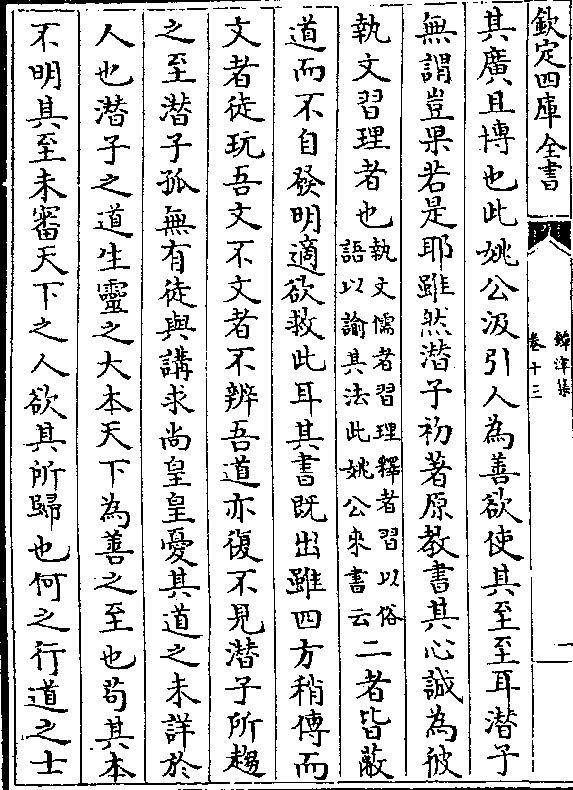 欽定四庫全書
鐔津集
卷十三
其廣且博也此姚公汲引人為善欲使其至至耳潛子
無謂豈果若是耶雖然潛子初著原教書其心誠為彼
執文習理者也執文儒者習理釋者習以俗語以諭其法此姚公來書云二者皆蔽
道而不自發明適欲救此耳其書既出雖四方稍傳而
文者徒玩吾文不文者不辨吾道亦復不見潛子所趨
之至潛子孤無有徒與講求尚皇皇憂其道之未詳於
人也潛子之道生靈之大本天下為善之至也苟其本
不明其至未審天下之人欲其所歸也何之行道之士